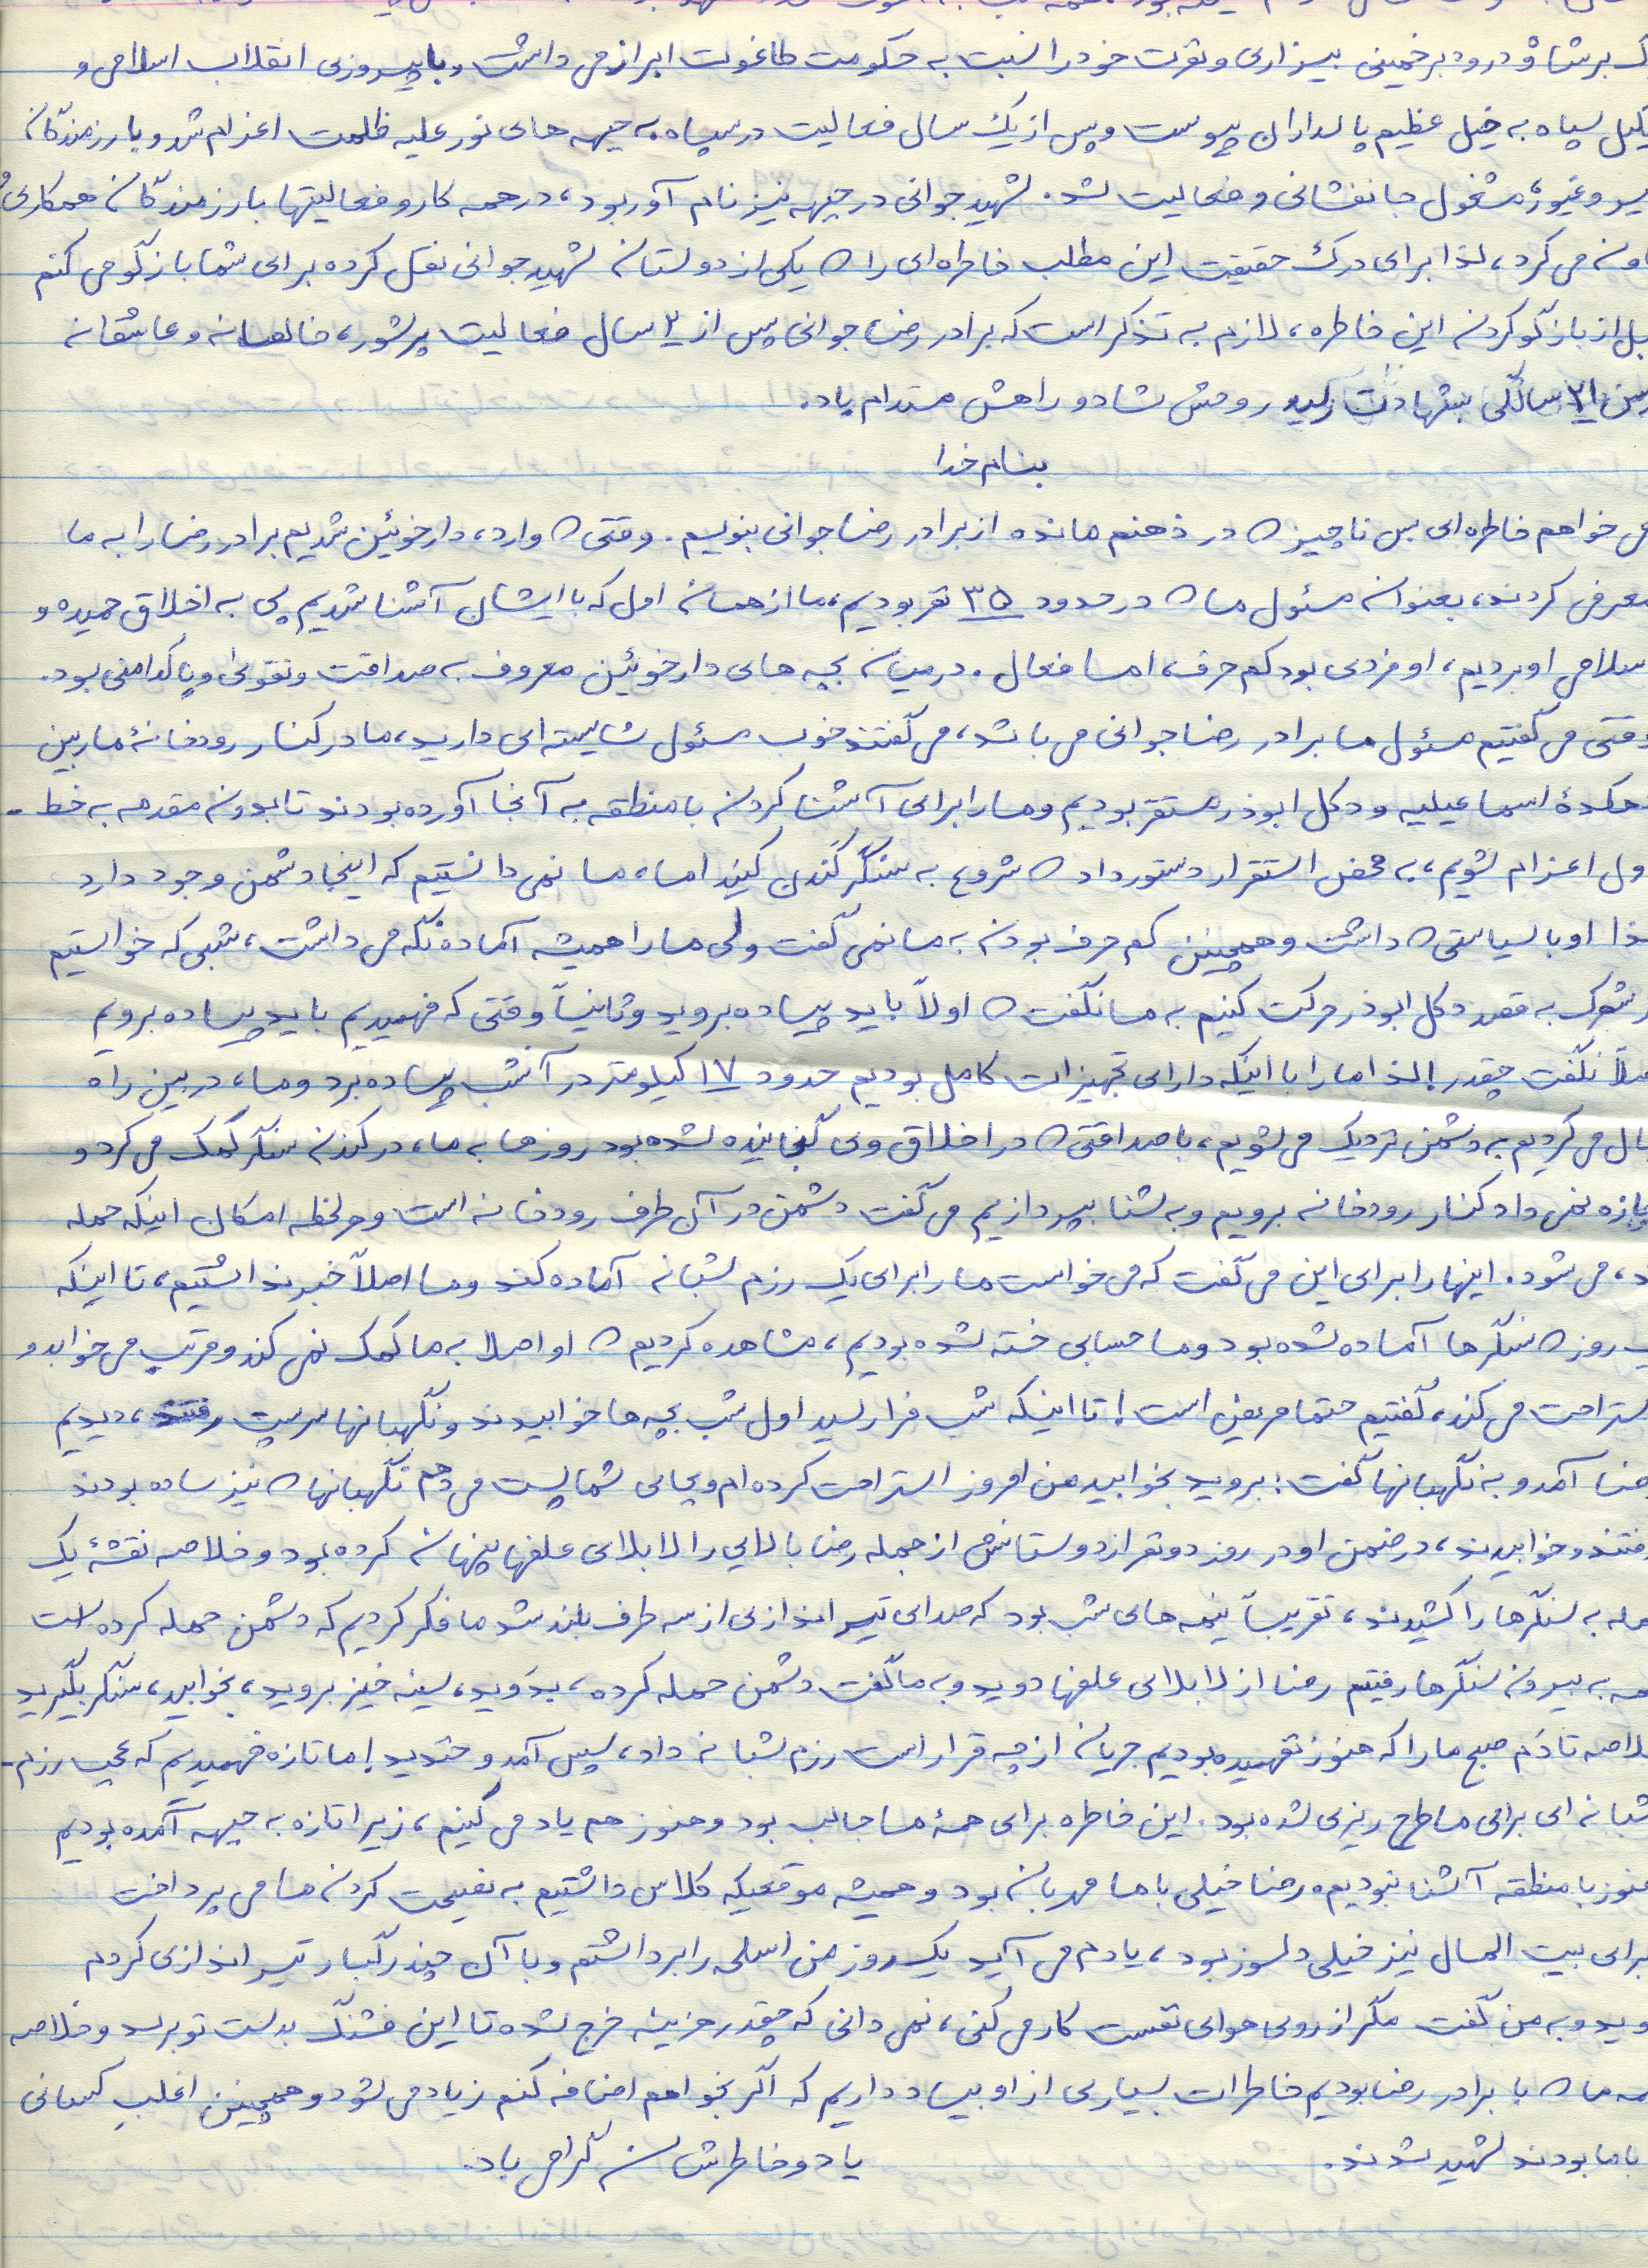 بر شاه و درود بر خمینی بیزاری و نفرت خود را نسبت به حکومت طاغوت ابراز می داشت و با پیروزی انقلاب اسلامی و
سپاه به خیل عظیم پاسداران پیوست و پس از یک سال فعالیت در سپاه به جبهه های نور علیه ظلمت اعزام شد و با رزمندگان
و غیور، مشغول جانفشانی و فعالیت شد. شهید جوانی در جبهه نیز نام آور بود، در همه کار و فعالیتها با رزمندگان همکاری و
می کرد، لذا برای درک حقیقت این مطلب خاطره ای را که یکی از دوستان شهید جوانی نقل کرده برای شما بازگو می کنم
از بازگو کردن این خاطره، لازم به تذکر است که برادر رضا جوانی پس از ۲ سال فعالیت پرشور، خالصانه و عاشقانه
۲۱ سالگی بشهادت رسید روحش شاد و راهش مستدام باد.
بنام خدا
می خواهم خاطره ای بس ناچیز که در ذهنم مانده از برادر رضا جوانی بنویسم. وقتی که وارد، دارخوئین شدیم برادر رضا را به ما
معرفی کردند، بعنوان مسئول ما که در حدود ۳۵ نفر بودیم، ما از همان اول که با ایشان آشنا شدیم پی به اخلاق حمیده و
اسلامی او بردیم، او فردی بود کم حرف، اما فعال. در میان بچه های دارخوئین معروف به صداقت و تقوی و پاکدامنی بود.
وقتی می گفتیم مسئول ما برادر رضا جوانی می باشد، می گفتند خوب مسئول شایسته ای دارید، ما در کنار رودخانهٔ مارد بین
دهکدهٔ اسماعیلیه و دکل ابوذر مستقر بودیم و ما را برای آشنا کردن با منطقه به آنجا آورده بودند تا بدون مقدمه به خط -
اول اعزام نشویم، به محض استقرار دستور داد که شروع به سنگر کندن کنید اما، ما نمی دانستیم که اینجا دشمن وجود دارد
لذا او با سیاستی که داشت و همچنین کم حرف بودن به ما نمی گفت ولی ما را همیشه آماده نگه می داشت، شبی که خواستیم
به مقصد دکل ابوذر حرکت کنیم به ما نگفت که اولاً باید پیاده بروید و ثانیاً وقتی که فهمیدیم باید پیاده برویم
اصلاً نگفت چقدر! لذا ما را با اینکه دارای تجهیزات کامل بودیم حدود ۱۷ کیلومتر در آنشب پیاده برد و ما، در بین راه
می کردیم به دشمن نزدیک می شویم، با صداقتی که در اخلاق وی گنجانیده شده بود روزها به ما، در کندن سنگر کمک می کرد و
اجازه نمی داد کنار رودخانه برویم و به شنا بپردازیم می گفت دشمن در آن طرف رودخانه است و هر لحظه امکان اینکه حمله
می شود. اینها را برای این می گفت که می خواست ما را برای یک رزم شبانه آماده کند و ما اصلاً خبر نداشتیم، تا اینکه
روز که سنگرها آماده شده بود و ما حسابی خسته شده بودیم، مشاهده کردیم که او اصلا به ما کمک نمی کند و مرتب می خوابد و
استراحت می کند، گفتیم حتما مریض است! تا اینکه شب فرا رسید اول شب بچه ها خوابیدند و نگهبانها سر پست رفتند، دیدیم
رضا آمد و به نگهبانها گفت: بروید بخوابید من امروز استراحت کرده ام و بجای شما پست می دهم نگهبانها که نیز ساده بودند
رفتند و خوابیدند، در ضمن او در روز دو نفر از دوستانش از جمله رضا بالایی را لابلای علفها پنهان کرده بود و خلاصه نقشهٔ یک
حمله به سنگرها را کشیدند، تقریباً نیمه های شب بود که صدای تیراندازی از سه طرف بلند شد ما فکر کردیم که دشمن حمله کرده است
به بیرون سنگرها رفتیم رضا از لابلای علفها دوید و به ما گفت دشمن حمله کرده، بدوید، سینه خیز بروید، بخوابید، سنگر بگیرید
خلاصه تا دم صبح ما را که هنوز نفهمیده بودیم جریان از چه قرار است رزم شبانه داد، سپس آمد و خندید! ما تازه فهمیدیم که عجب رزم -
شبانه ای برای ما طرح ریزی شده بود. این خاطره برای همهٔ ما جالب بود و هنوز هم یاد می کنیم، زیرا تازه به جبهه آمده بودیم
هنوز با منطقه آشنا نبودیم، رضا خیلی با ما مهربان بود و همیشه موقعیکه کلاس داشتیم به نصیحت کردن ما می پرداخت
برای بیت المال نیز خیلی دلسوز بود، یادم می آید یک روز من اسلحه را برداشتم و با آن چند رگبار تیراندازی کردم
دوید و به من گفت مگر از روی هوای نفست کار می کنی، نمی دانی که چقدر هزینه خرج شده تا این فشنگ بدست تو برسد و خلاصه
ما که با برادر رضا بودیم خاطرات بسیاری از او بیاد داریم که اگر بخواهم اضافه کنم زیاد می شود و همچنین اغلب کسانی
با ما بودند شهید شدند. یاد و خاطرشان گرامی باد.